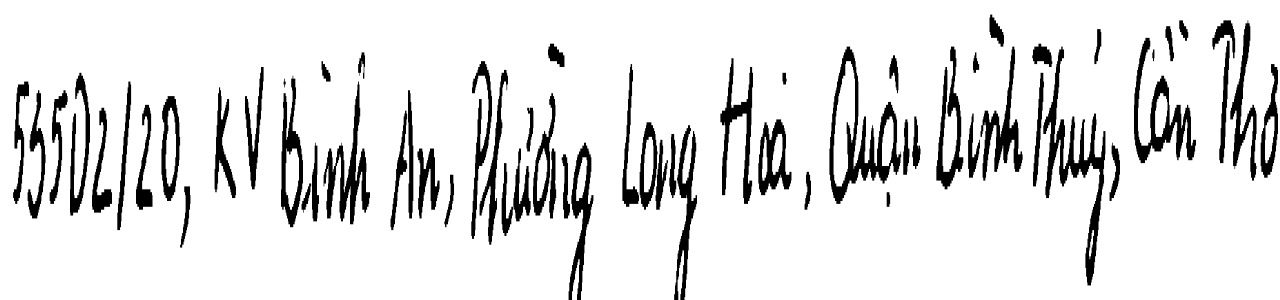 535D2/20, KV Bình An, Phường Long Hoà, Quận Bình Thuỷ, Cần Thơ